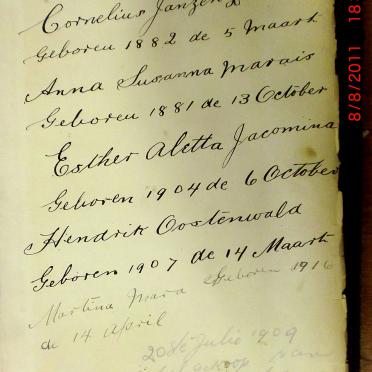 Cornelius Janzen
Geboren 1882 de 5 Maart
Anna Susanna Marais
Geboren 1881 de 13 October
Esther Aletta Jacomina
Geboren 1904 de 6 October
Hendrik Oostenwald
Geboren 1907 de 14 Maart
Martina Mara Geboren 1916
de 14 April
20ste Julio 1909
van
8/8/2011 18: